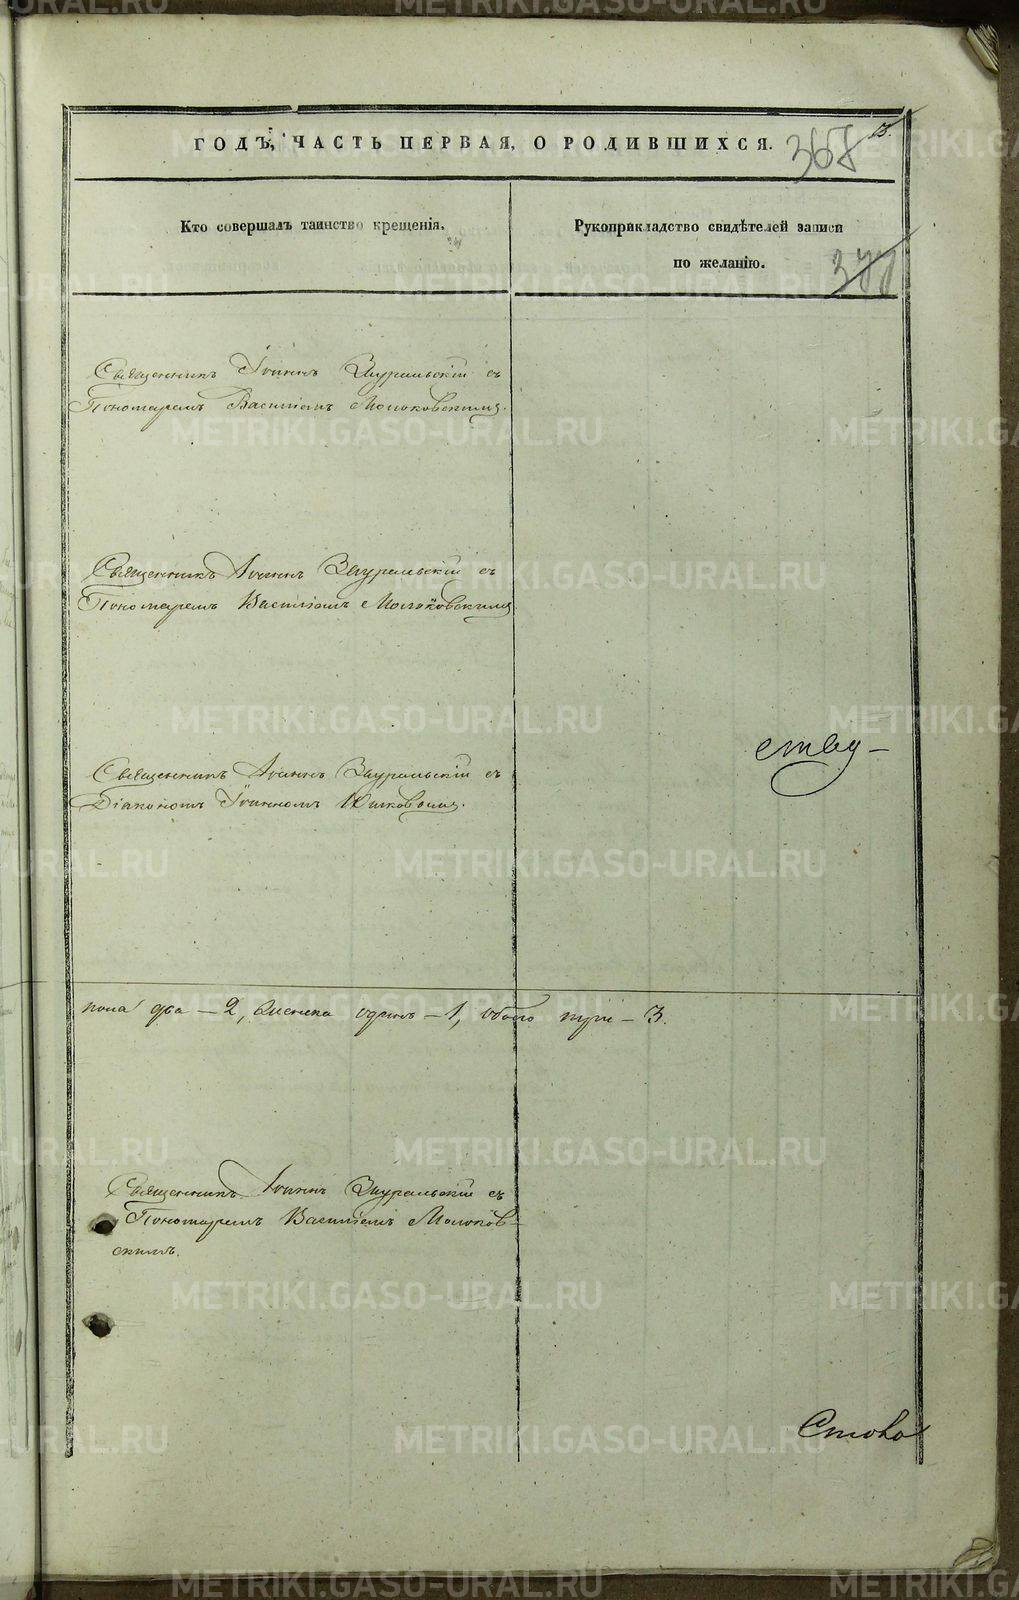 ГОДЪ, ЧАСТЬ ПЕРВАЯ, О РОДИВШИХСЯ.
13.
368
377
Кто совершалъ таинство крещенія.
Рукоприкладство свидѣтелей записи
по желанію.
Священникъ Іоаннъ Зауральскій съ
Пономаремъ Василіемъ Молоковскимъ.
Священникъ Іоаннъ Зауральскій съ
Пономаремъ Василіемъ Молоковскимъ
Священникъ Іоаннъ Зауральскій съ
Діакономъ Іоанномъ
пола два – 2, женска одинъ – 1, обоего – 3.
Священникъ Іоаннъ Зауральскій съ
Пономаремъ Василіемъ Молоков-
скимъ.
METRIKI.GASO-URAL.RU